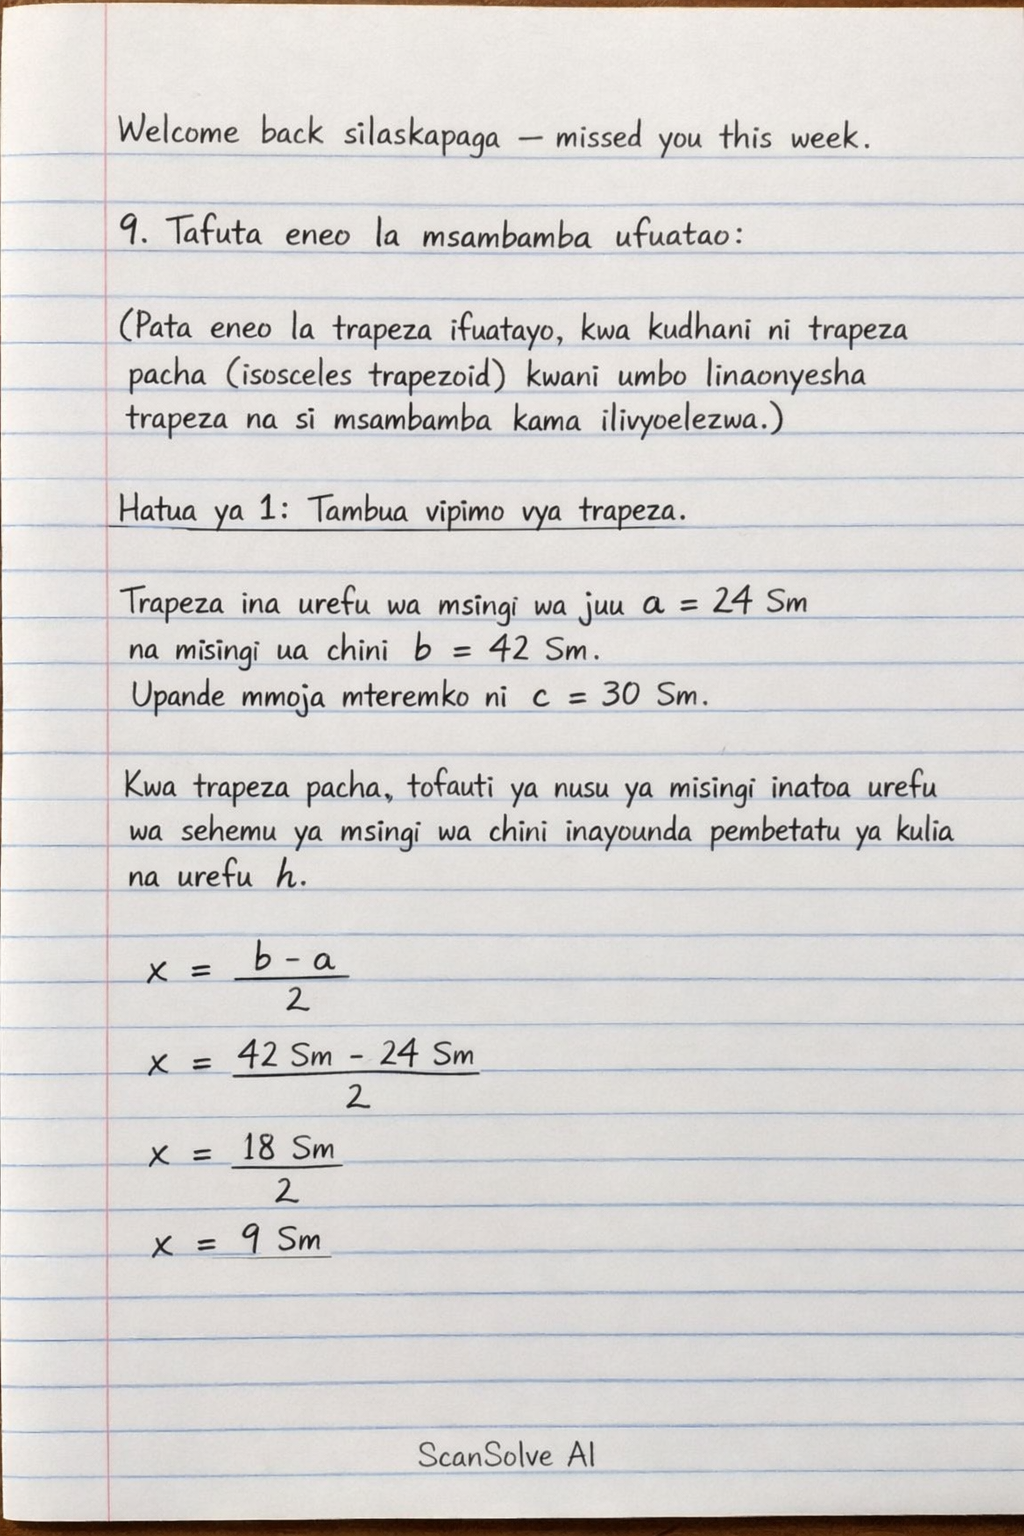 Welcome back silaskapaga — missed you this week.
9. Tafuta eneo la msambamba ufuatao:
(Pata eneo la trapeza ifuatayo, kwa kudhani ni trapeza
pacha (isosceles trapezoid) kwani umbo linaonyesha
trapeza na si msambamba kama ilivyoelezwa.)
Hatua ya 1: Tambua vipimo vya trapeza.
Trapeza ina urefu wa msingi wa juu a = 24 Sm
na misingi ua chini b = 42 Sm.
Upande mmoja mteremko ni c = 30 Sm.
Kwa trapeza pacha, tofauti ya nusu ya misingi inatoa urefu
wa sehemu ya msingi wa chini inayounda pembetatu ya kulia
na urefu h.
x = \frac{b - a}{2}
x = \frac{42 Sm - 24 Sm}{2}
x = \frac{18 Sm}{2}
x = 9 Sm
ScanSolve AI